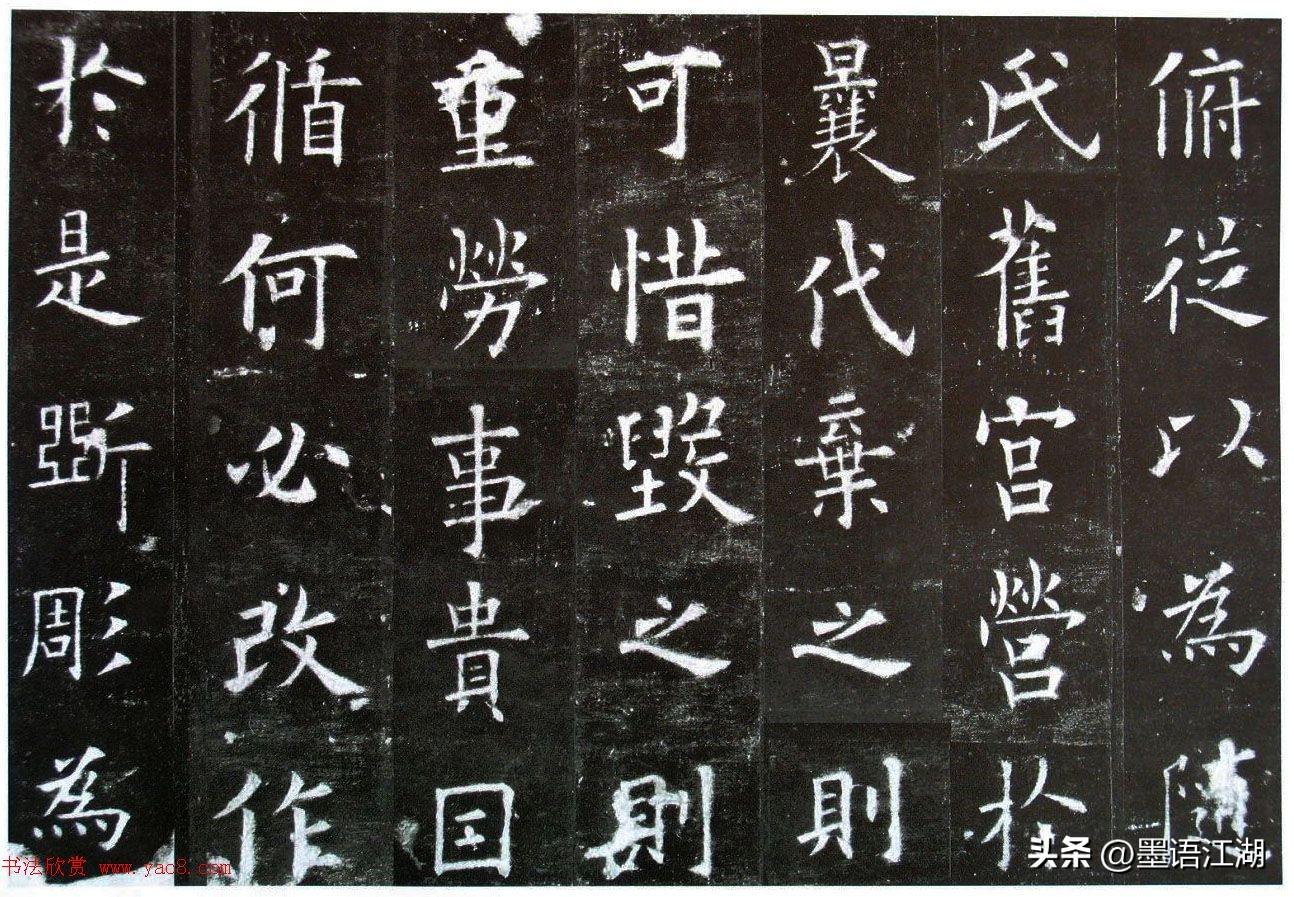 俯從以為隨
氏舊宮營於
曩代棄之則
可惜毀之則
重勞事貴因
循何必改作
於是斲彫為
书法欣赏 www.yac8.com
头条 @墨语江湖